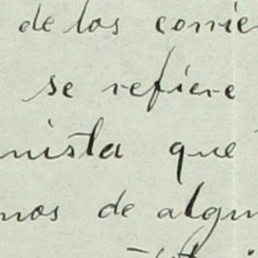 de las corrie
se refiere
nista que
mos de algu